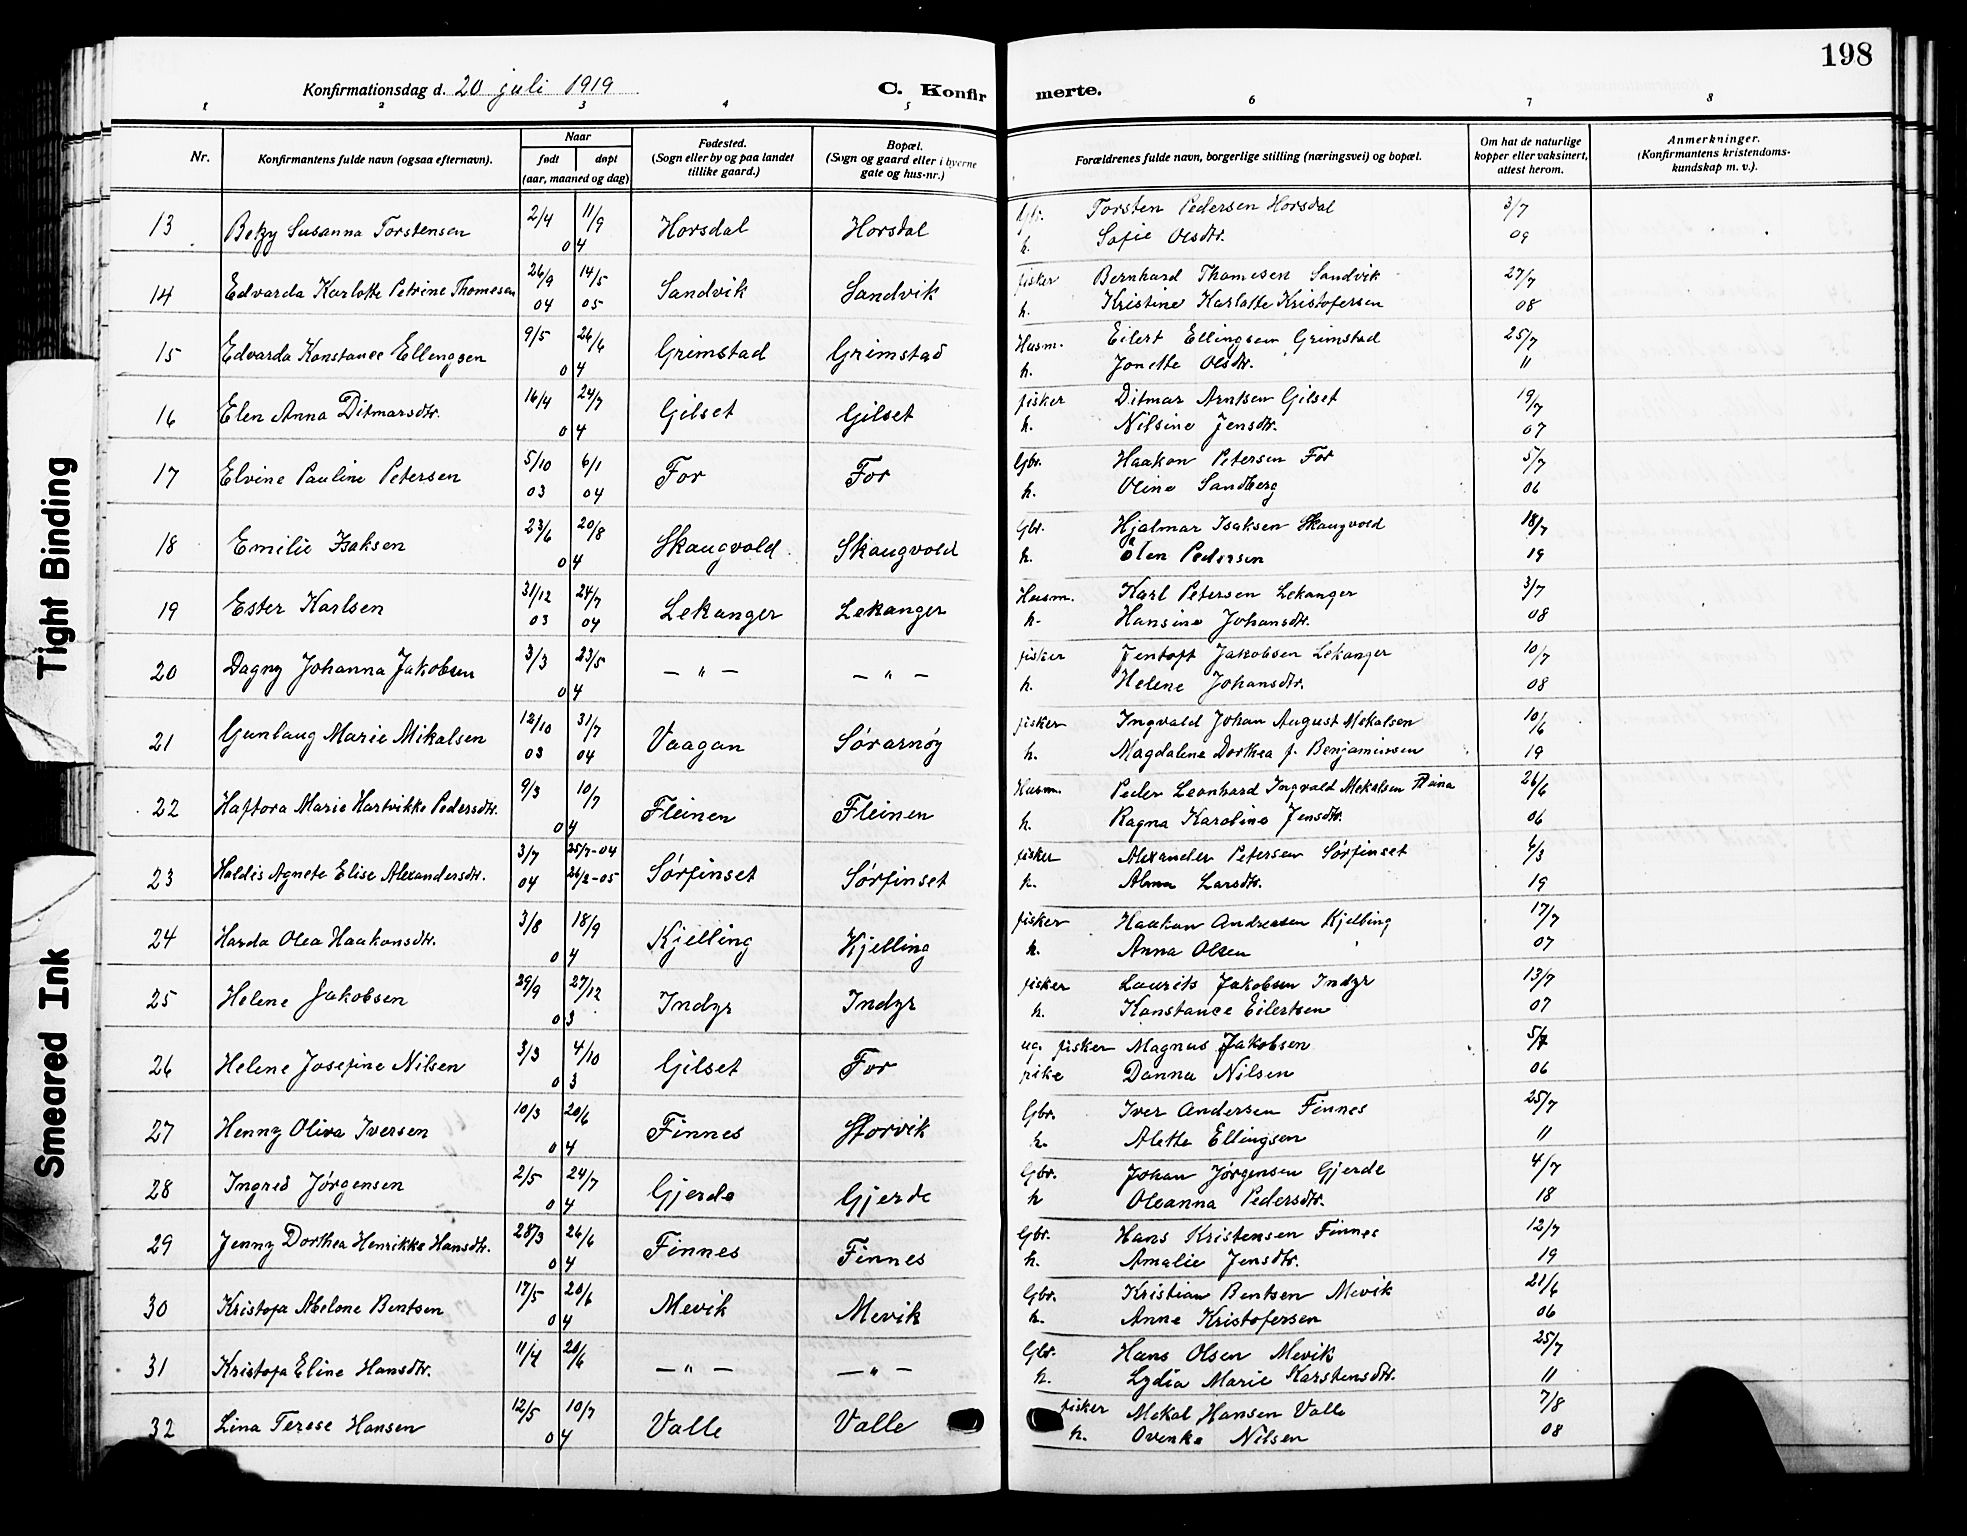 198
Konfirmationsdag d. 20 juli 1919
C. Konfir merte.
1 2 3 4 5 6 7 8
Nr.
Konfirmantens fulde navn (ogsaa efternavn).
Naar
født døpt
(aar, maaned og dag)
Fødested.
(Sogn eller by og paa landet
tillike gaard.)
Bopæl.
(Sogn og gaard eller i byerne
gate og hus-nr.)
Forældrenes fulde navn, borgerlige stilling (næringsvei) og bopæl.
Om hat de naturlige
kopper eller vaksinert,
attest herom.
Anmerkninger.
(Konfirmantens kristendoms-
kundskap m. v.).
13 Betzy Susanna Torstensen 2/4 11/9 04 Horsdal Horsdal Gbr. Torsten Pedersen Horsdal 3/7
h. Sofie Olsdtr. 09
14 Edvarda Karlotte Petrine Thomesen 26/9 04 14/5 05 Sandvik Sandvik fisker Bernhard Thomesen Sandvik 27/7
h. Kristine Karlotte Kristofersen 08
15 Edvarda Konstance Ellengsen 9/5 26/6 04 Grimstad Grimstad Husm. Eilert Ellingsen Grimstad 25/7
h. Jonette Olsdtr. 11
16 Elen Anna Ditmarsdtr. 16/4 24/7 04 Gilset Gilset fisker Ditmar Arntsen Gilset 19/7
h. Nilsine Jensdtr. 07
17 Elvine Pauline Petersen 5/10 03 6/1 04 For For Gbr. Haakon Petersen For 5/7
h. Oline Sandberg 06
18 Emilie Isaksen 23/6 20/8 04 Skaugvold Skaugvold Gbr. Hjalmar Isaksen Skaugvold 18/7
h. Elen Pedersen 19
19 Ester Karlsen 31/12 03 24/7 04 Lekanger Lekanger Husm. Karl Petersen Lekanger 3/7
h. Hansine Johansdtr. 08
20 Dagny Johanna Jakobsen 3/3 23/5 04 — " — — " — fisker Jentoft Jakobsen Lekanger 10/7
h. Helene Johansdtr. 08
21 Gunlaug Marie Mikalsen 12/10 03 31/7 04 Vaagan Sørarnøy fisker Ingvald Johan August Mekalsen 10/6
h. Magdalene Dorthea f. Benjaminsen 19
22 Haftora Marie Hartvikke Pedersdtr. 9/3 10/7 04 Fleinen Fleinen Husm. Peder Leonhard Ingvald Mekalsen Fleina 26/6
h. Ragna Karoline Jensdtr. 06
23 Haldis Agnete Elise Alexandersdtr. 3/7 04 25/7-04 26/2-05 Sørfinset Sørfinset fisker Alexander Petersen Sørfinset 6/3
h. Alma Larsdtr. 19
24 Harda Olea Haakonsdtr. 3/8 18/9 04 Kjelling Kjelling fisker Haakon Andreasen Kjelling 17/7
h. Anna Olsen 07
25 Helene Jakobsen 29/9 27/12 03 Indyr Indyr fisker Laurits Jakobsen Indyr 13/7
h. Konstance Eilertsen 07
26 Helene Josefine Nilsen 3/3 4/10 03 Gilset For ug. fisker Magnus Jakobsen 5/7
pike Danna Nilsen 06
27 Henny Oliva Iversen 10/3 20/6 04 Finnes Storvik Gbr. Iver Andersen Finnes 25/7
h. Alette Ellingsen 11
28 Ingred Jørgensen 2/5 24/7 04 Gjerde Gjerde Gbr. Johan Jørgensen Gjerde 4/7
h Oleanna Pedersdtr. 18
29 Jenny Dorthea Henrikke Hansdtr. 28/3 26/6 04 Finnes Finnes Gbr. Hans Kristensen Finnes 12/7
h. Amalie Jensdtr. 19
30 Kristofa Abelone Bentsen 17/5 20/6 04 Mevik Mevik Gbr. Kristian Bentsen Mevik 21/6
h. Anne Kristofersen 06
31 Kristofa Eline Hansdtr. 11/4 20/6 — " — — " — Gbr. Hans Olsen Mevik 25/7
h. Lydia Marie Karstensdtr. 11
32 Lina Terese Hansen 12/5 10/7 04 Valle Valle fisker Mekal Hansen Valle 7/8
h. Ovenke Nilsen 08
Tight Binding
Smeared Ink